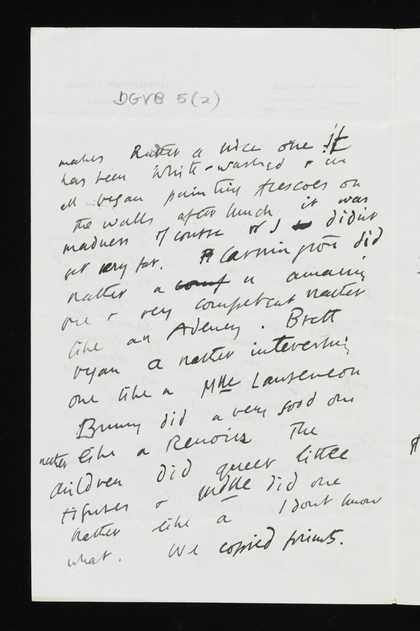 DGVB 5(2)
makes Rather a nice one it
has been white-washed & we
all began painting frescoes on
the walls after lunch it was
madness of course & I didn't
get very far. Carrington did
rather a amazing
one & very competent rather
like an Adeney. Brett
began a rather interesting
one like a Mlle Laurencin
Bunny did a very good one
rather like a Renoir The
children did queer little
figures & Mlle did one
rather like a I don't know
what. We copied prints.